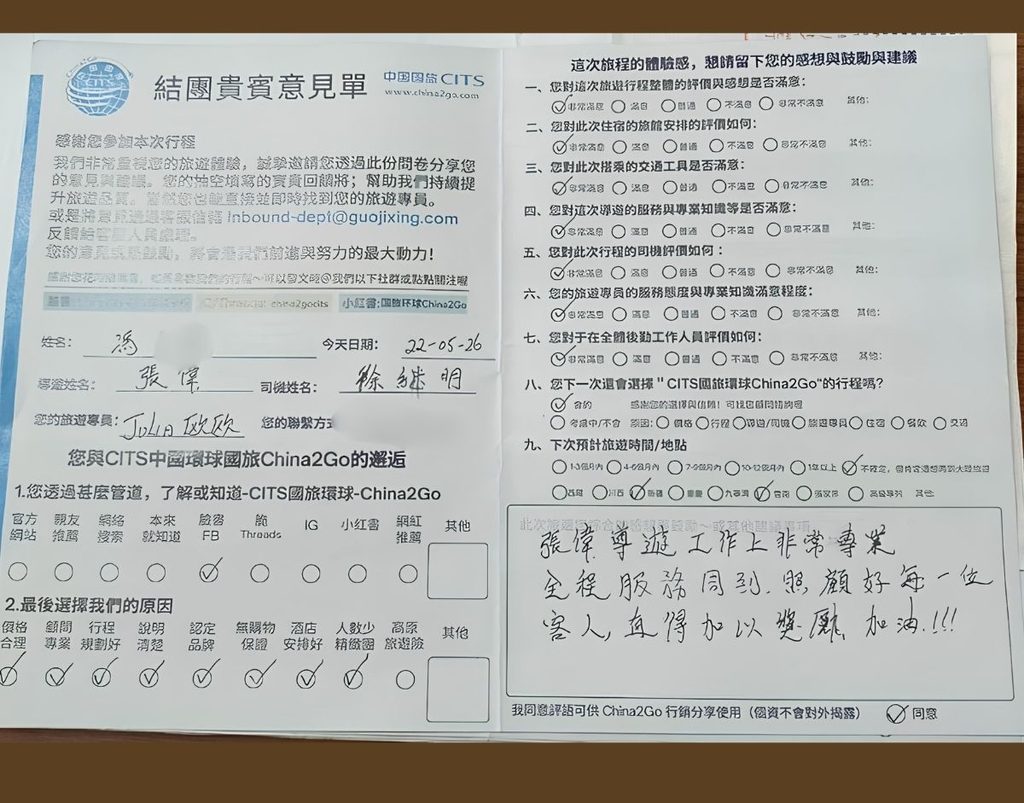 CITS
結團貴賓意見單
中国国旅 CITS
www.china2go.com
感謝您參加本次行程
我們非常重視您的旅遊體驗，誠摯邀請您透過此份問卷分享您
的意見與建議。您的抽空填寫的寶貴回饋將；幫助我們持續提
升旅遊品質。當然您也能直接並即時找到您的旅遊專員。
inbound-dept@guojixing.com
反饋給客服人員處理。
將會是我們前進與努力的最大動力！
可以發文或@我們以下社群或點點關注喔
china2gocits
小紅書:国旅环球China2Go
姓名： 馮
今天日期： 22-05-26
導遊姓名： 張偉
司機姓名： 徐継明
您的旅遊專員： Julia 欧欧
您的聯繫方式
您與CITS中國環球國旅China2Go的邂逅
1.您透過甚麼管道，了解或知道-CITS國旅環球-China2Go
官方網站 親友推薦 網絡搜索 本來就知道 臉書FB 脆Threads IG 小紅書 網紅推薦 其他
2.最後選擇我們的原因
價格合理 顧問專業 行程規劃好 說明清楚 認定品牌 無購物保證 酒店安排好 人數少精緻團 高原旅遊險 其他
這次旅程的體驗感，懇請留下您的感想與鼓勵與建議
一、您對這次旅遊行程整體的評價與感想是否滿意：
非常滿意 滿意 普通 不滿意 非常不滿意 其他：
二、您對此次住宿的旅館安排的評價如何：
非常滿意 滿意 普通 不滿意 非常不滿意 其他：
三、您對此次搭乘的交通工具是否滿意：
非常滿意 滿意 普通 不滿意 非常不滿意 其他：
四、您對這次導遊的服務與專業知識等是否滿意：
非常滿意 滿意 普通 不滿意 非常不滿意 其他：
五、您對此次行程的司機評價如何：
非常滿意 滿意 普通 不滿意 非常不滿意 其他：
六、您的旅遊專員的服務態度與專業知識滿意程度：
非常滿意 滿意 普通 不滿意 非常不滿意 其他：
七、您對于在全體後勤工作人員評價如何：
非常滿意 滿意 普通 不滿意 非常不滿意 其他：
八、您下一次還會選擇"CITS國旅環球China2Go"的行程嗎?
會的 感謝您的選擇與信賴！
考慮中/不會 原因： 價格 行程 導遊/司機 旅遊專員 住宿 餐飲 交通
九、下次預計旅遊時間/地點
1-3個月內 4-6個月內 7-9個月內 10-12個月內 1年以上
西藏 川西 新疆 重慶 九寨溝 雲南 張家界 其他:
張偉導遊工作上非常專業
全程服務周到.照顧好每一位
客人,值得加以獎勵 加油.!!!
我同意評語可供 China2Go 行銷分享使用（個資不會對外揭露） 同意